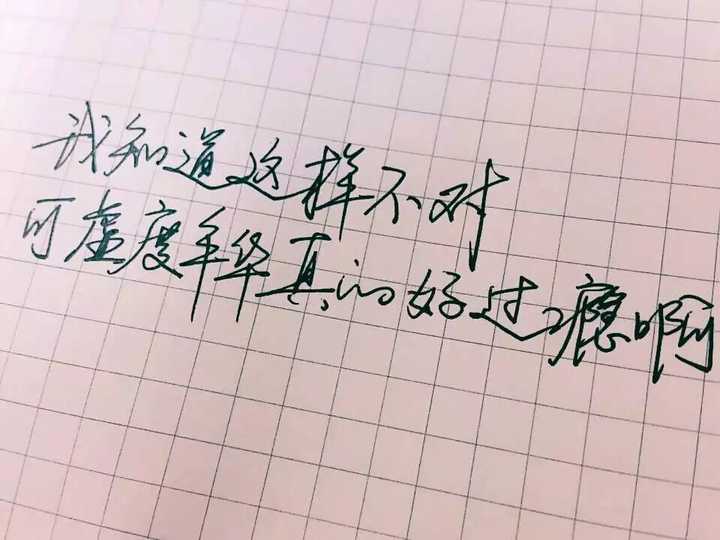 我知道这样不对
可虚度年华真的好过瘾啊